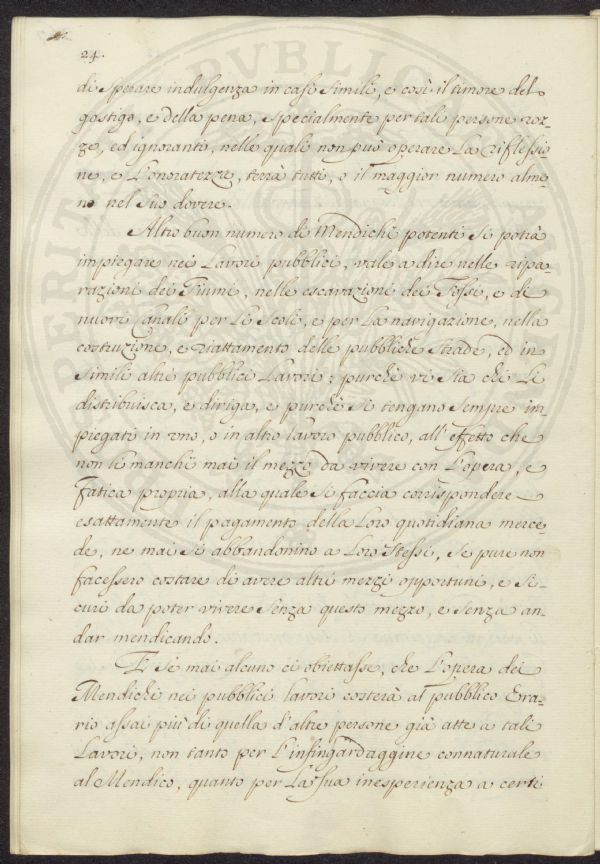 24.
di sperare indulgenza in casi simili, e così il timore del
gastigo, e della pena, specialmente per tali persone roz-
ze, ed ignoranti, nelle quali non può operare la riflessio
ne, e l'onoratezza, terrà tutti, o il maggior numero alme-
no nel suo dovere.
Altro buon numero di Mendichi potenti si potrà
impiegare nei Lavori pubblici, vale a dire nelle ripa-
razioni dei Fiumi, nelle escavazioni dei Fossi, e di
nuovi Canali per li Scoli, e per la navigazione, nella
costruzione, e riattamento delle pubbliche strade, ed in
simili altri pubblici Lavori; purchè vi sia chi li
distribuisca, e diriga, e purchè si tengano sempre im-
piegati in uno, o in altro lavoro pubblico, all'effetto che
non li manchi mai il mezzo da vivere con l'opera, e
fatica propria, alla quale si faccia corrispondere
esattamente il pagamento della loro quotidiana merce-
de, ne mai si abbandonino a loro stessi, se pure non
facessero costare di avere altri mezzi opportuni, e si-
curi da poter vivere senza questo mezzo, e senza an-
dar mendicando.
E se mai alcuno ci obiettasse, che l'opera dei
Mendichi nei pubblici lavori costerà al pubblico Era-
rio assai più di quella d'altre persone già atte a tali
Lavori, non tanto per l'infingardaggine connaturale
al Mendico, quanto per la sua inesperienza a certi